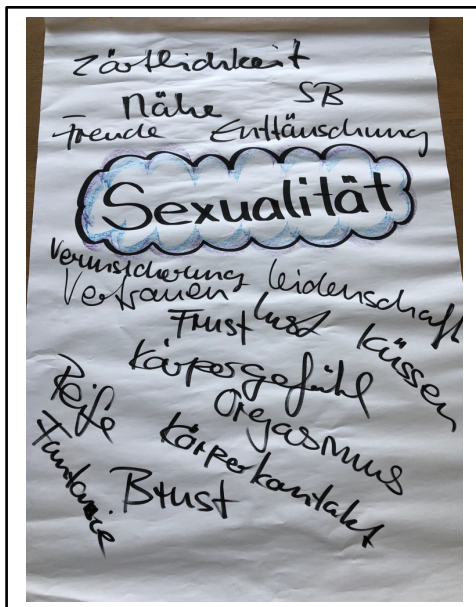 Zärtlichkeit
Nähe SB
Freude Enttäuschung
Sexualität
Verunsicherung Leidenschaft
Vertrauen Lust
Frust Küssen
Körpergefühl
Reife Orgasmus
Fantasie Körperkontakt
Brust